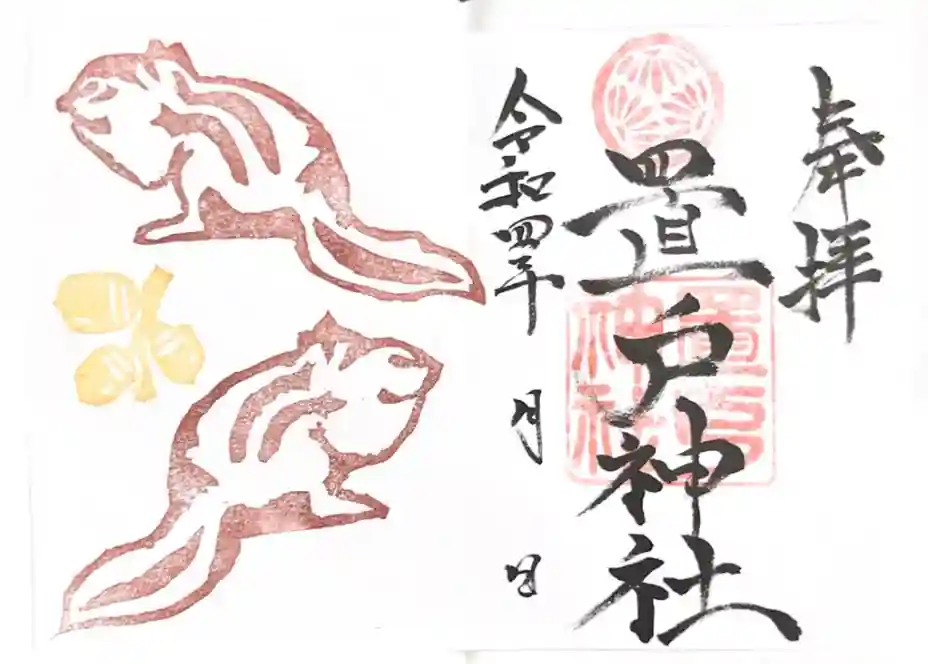 奉拝
置戸神社
置戸
神社
令和四年 月 日